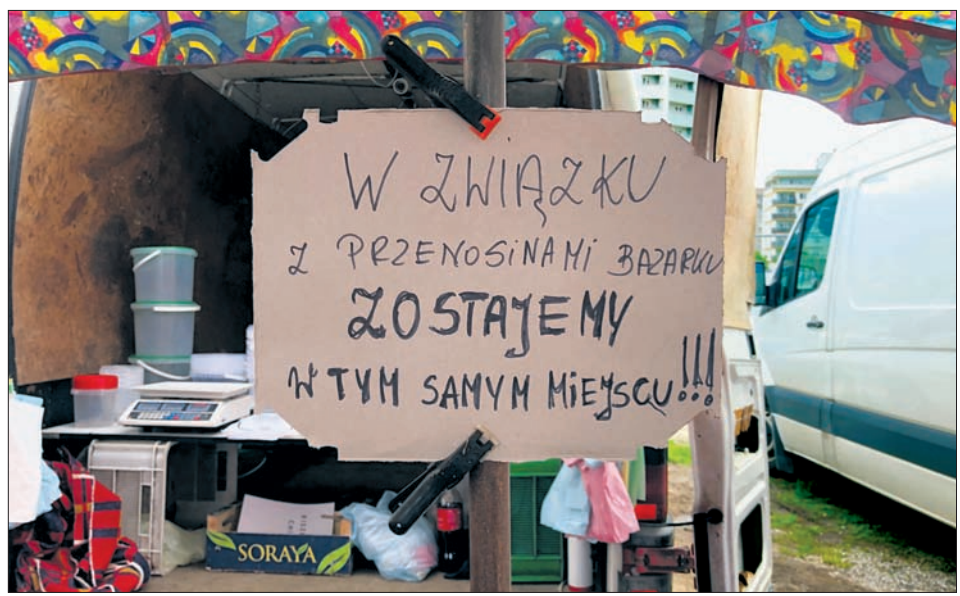 W ZWIĄZKU
Z PRZENOSINAMI BAZARKU
ZOSTAJEMY
W TYM SAMYM MIEJSCU!!!
SORAYA